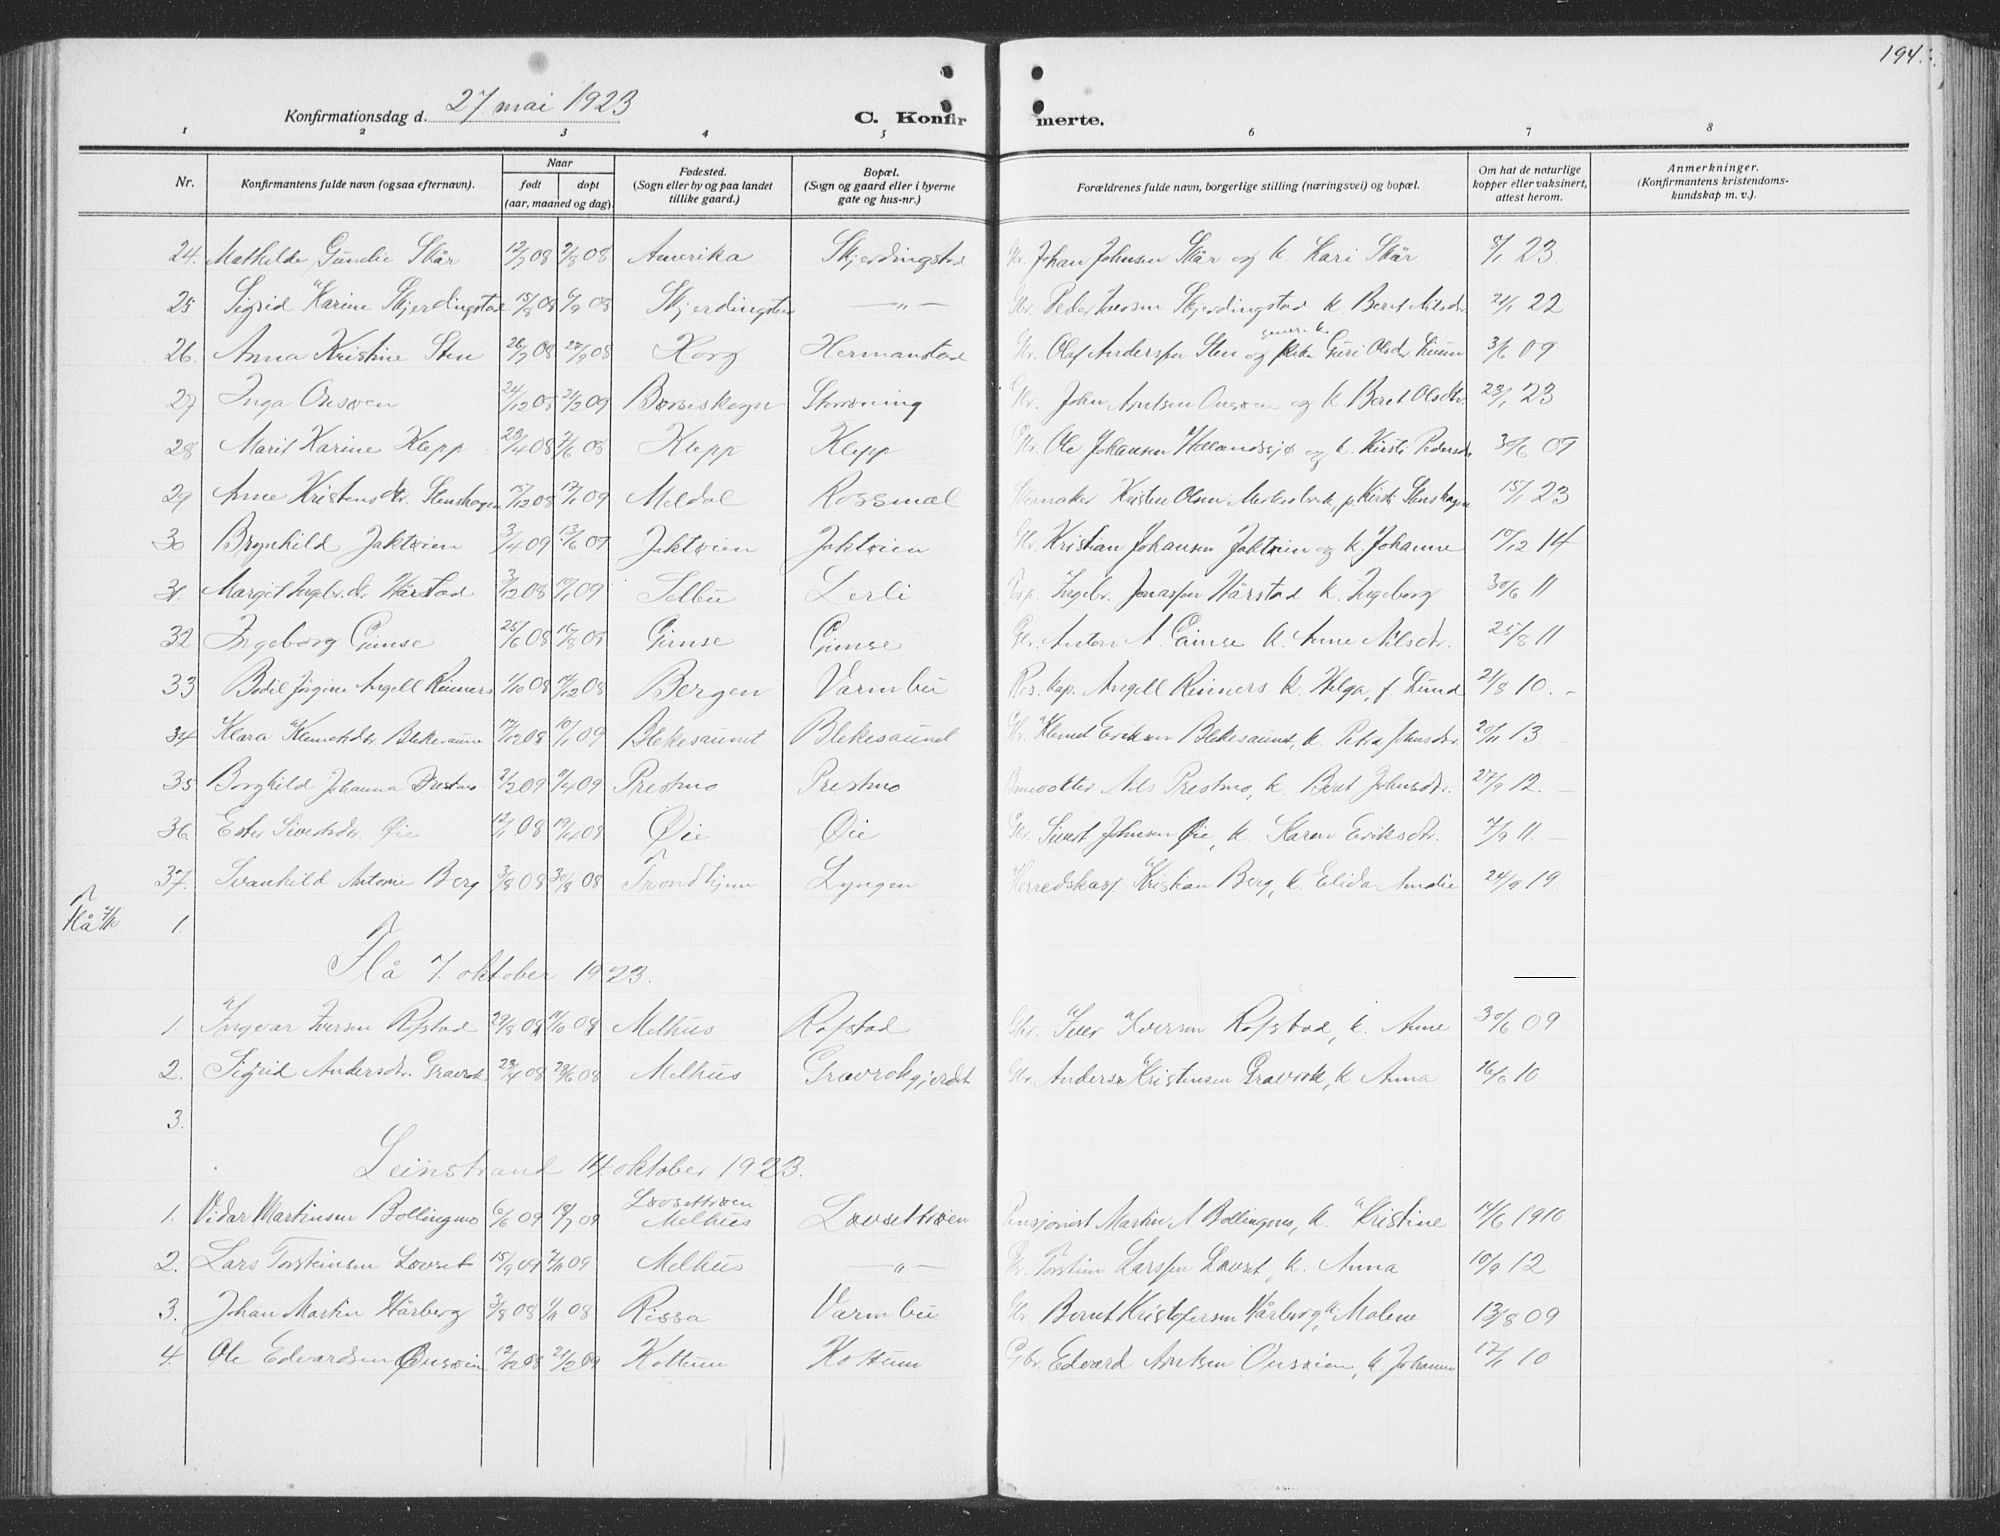 194.
Konfirmationsdag d. 27 mai 1923
C. Konfirmerte.
1 2 3 4 5 6 7 8
Nr. Konfirmantens fulde navn (ogsaa efternavn). Naar født døpt (aar, maaned og dag). Fødested. (Sogn eller by og paa landet tillike gaard.) Bopæl. (Sogn og gaard eller i byerne gate og hus-nr.) Forældrenes fulde navn, borgerlige stilling (næringsvei) og bopæl. Om hat de naturlige kopper eller vaksinert, attest herom. Anmerkninger. (Konfirmantens kristendomskundskap m. v.).
24. Mathilde Gundie Skår 12/7 08 2/8 08 Amerika Skjerdingstad Gbr. Johan Johnsen Skår og k. Kari Skår 8/1 23.
25 Sigrid Karine Skjerdingstad 15/8 08 6/9 08 Skjerdingstad —„— Gbr. Peder Skjerdingstad k. Beret Nilsdr. 21/1 22
26. Anna Kristine Sten 26/7 08 27/9 08 Horg Hermanstad Gbr. Olaf Anderssen Sten og Guri Olsdr. 3/6 09
27 Inga Onsøen 24/12 08 21/2 09 Børseskogn Skrøning Gbr. John Arntsen Onsøen og k. Beret Olsdtr. 23/1 23
28 Marit Karine Klepp 23/4 08 7/6 08 Klepp Klepp Gbr. Ole Johansen Hollandsjø og k. Kirsti Pedersdr 30/6 09
29 Anne Kristensdtr. Stenshagen 15/12 08 17/1 09 Meldal Rossmæl Kristen Olsen, p. Kirsti Stenshagen 15/1 23
30 Brynhild Jaktøien 3/4 09 13/6 09 Jaktøien Jaktøien Gbr. Kristian Johansen Jaktøien og k. Johanne 10/12 14
31. Margit Ingbr.dr. Hårstad 3/12 08 10/1 09 Selbu Lerli Ingebr. Jonassen Hårstad k. Ingeborg 30/6 11
32 Ingeborg Gimse 25/6 08 16/8 08 Gimse Gimse Gbr. Anton A. Gimse k. Anne Nilsdtr. 25/8 11
33 Bodil Jørgine Angell Riiners 1/10 08 12 08 Bergen Varmbu Res. kap. Angell Riiners k. Helga, f. Lund 21/8 10. -
34 Klara Klemetsdtr. Blekesaune 17/12 08 10/1 09 Blekesaunet Blekesaunet Gbr. Klemet Eriksen Blekesaunet, k. Petra Johnsdtr. 20/11 13 -
35 Borghild Johanna Prestmo 2/2 09 11/4 09 Prestmo Prestmo Banevokter Nils Prestmo, k. Beret Johnsdtr. 27/9 12. -
36 Ester Sivertsdtr. Øie 12/1 08 19/4 08 Øie Øie Gbr. Sivert Johnsen Øie, k. Karen Eriksdtr. 7/9 11. -
37. Svanhild Antonie Berg 3/8 08 30/8 08 Trondhjem Lyngen Herredskass. Kristian Berg, k. Elida Amalie 24/9 19.
Flå 7/10 1.
Flå 7. oktober 1923.
1. Ingvar Iversen Rofstad 29/8 08 11/10 08 Melhus Rofstad Gbr. Iver Iversen Rofstad, k. Anne 30/6 09
2. Sigrid Andersdtr. Gravrok 23/4 08 28/6 08 Melhus Gravrokgjerdet Gbr. Anders Kristensen Gravrok, k Anna 16/6 10
3.
Leinstrand 14 oktober 1923.
1. Vidar Martinsen Bollingmo 6/6 09 18/7 09 Løvsettrøen Melhus Løvsettrøen Pensjonist Martin A. Bollingmo, k. Kristine 14/6 1910
2. Lars Torsteinsen Løvset 15/9 09 7/11 09 Melhus —„— Gbr. Torstein Larssen Løvset, k. Anna 10/9 12
3. Johan Martin Hårberg 3/8 08 1/11 08 Rissa Varmbu Gbr Bernt Kristofersen Hårberg, k. Malene 13/8 09
4. Ole Edvardsen Onsøien 12/12 08 21/2 09 Kottum Kottum Gbr. Edvard Arntsen Onsøien, k. Johanne 17/1 10